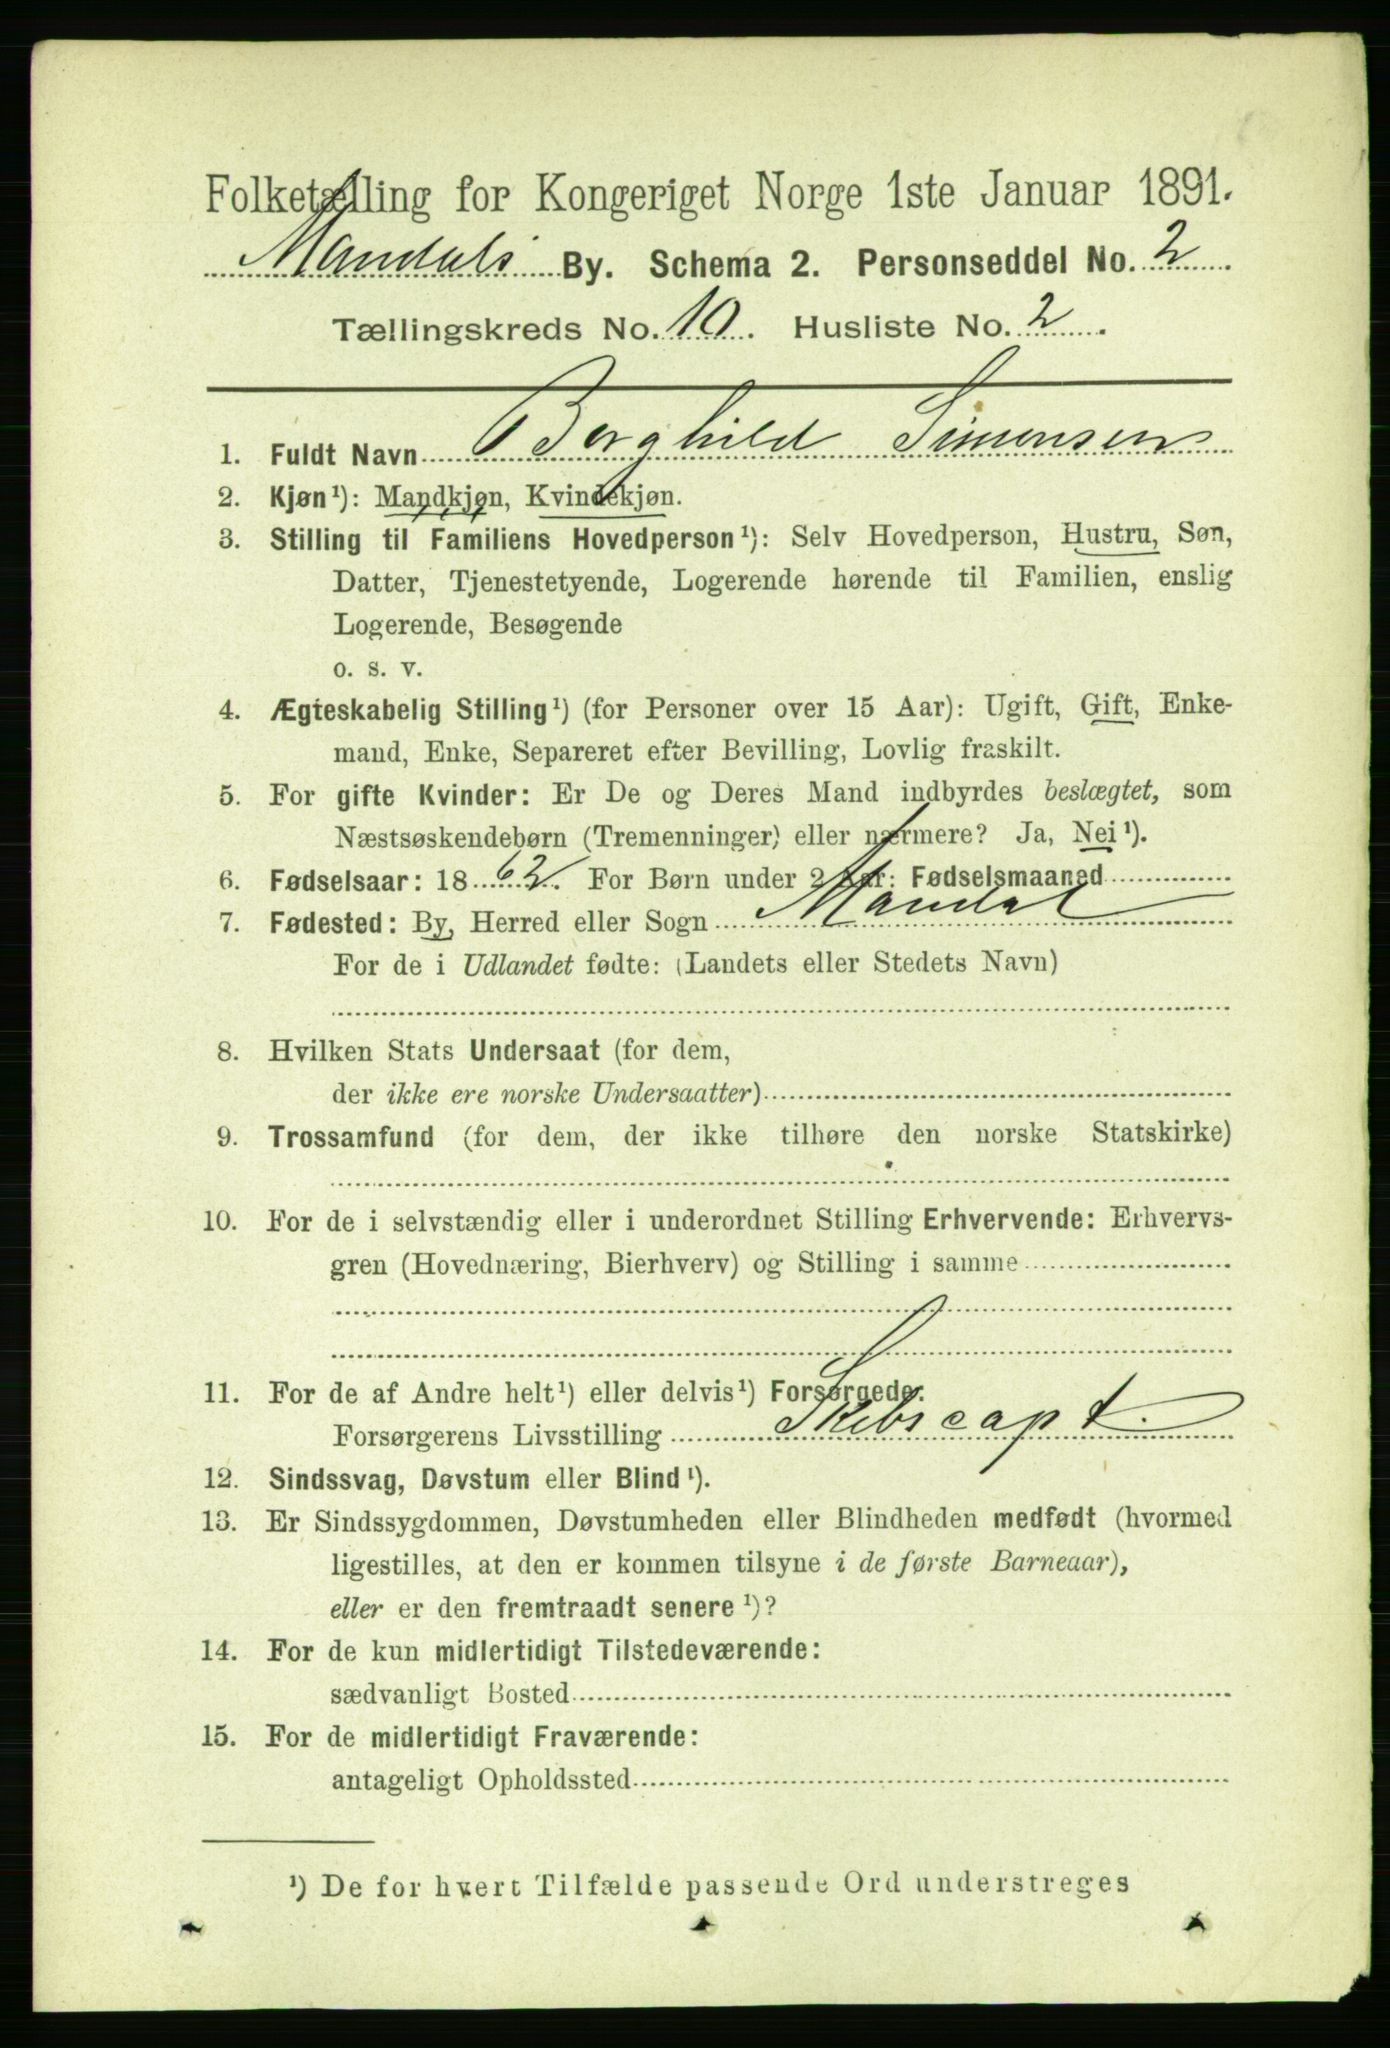 Folketælling for Kongeriget Norge 1ste Januar 1891.
Mandals By. Schema 2. Personseddel No. 2
Tællingskreds No. 10. Husliste No. 2.
1. Fuldt Navn Borghild Simonsen
2. Kjøn¹): Mandkjøn, Kvindekjøn.
3. Stilling til Familiens Hovedperson¹): Selv Hovedperson, Hustru, Søn,
Datter, Tjenestetyende, Logerende hørende til Familien, enslig
Logerende, Besøgende
o. s. v.
4. Ægteskabelig Stilling¹) (for Personer over 15 Aar): Ugift, Gift, Enke-
mand, Enke, Separeret efter Bevilling, Lovlig fraskilt.
5. For gifte Kvinder: Er De og Deres Mand indbyrdes beslægtet, som
Næstsøskendebørn (Tremenninger) eller nærmere? Ja, Nei¹).
6. Fødselsaar: 1862. For Børn under 2 Aar: Fødselsmaaned
7. Fødested: By, Herred eller Sogn Mandal
For de i Udlandet fødte: (Landets eller Stedets Navn)
8. Hvilken Stats Undersaat (for dem,
der ikke ere norske Undersaatter)
9. Trossamfund (for dem, der ikke tilhøre den norske Statskirke)
10. For de i selvstændig eller i underordnet Stilling Erhvervende: Erhvervs-
gren (Hovednæring, Bierhverv) og Stilling i samme
11. For de af Andre helt¹) eller delvis¹) Forsørgede:
Forsørgerens Livsstilling Skibscapt.
12. Sindssvag, Døvstum eller Blind¹).
13. Er Sindssygdommen, Døvstumheden eller Blindheden medfødt (hvormed
ligestilles, at den er kommen tilsyne i de første Barneaar),
eller er den fremtraadt senere¹)?
14. For de kun midlertidigt Tilstedeværende:
sædvanligt Bosted
15. For de midlertidigt Fraværende:
antageligt Opholdssted
¹) De for hvert Tilfælde passende Ord understreges